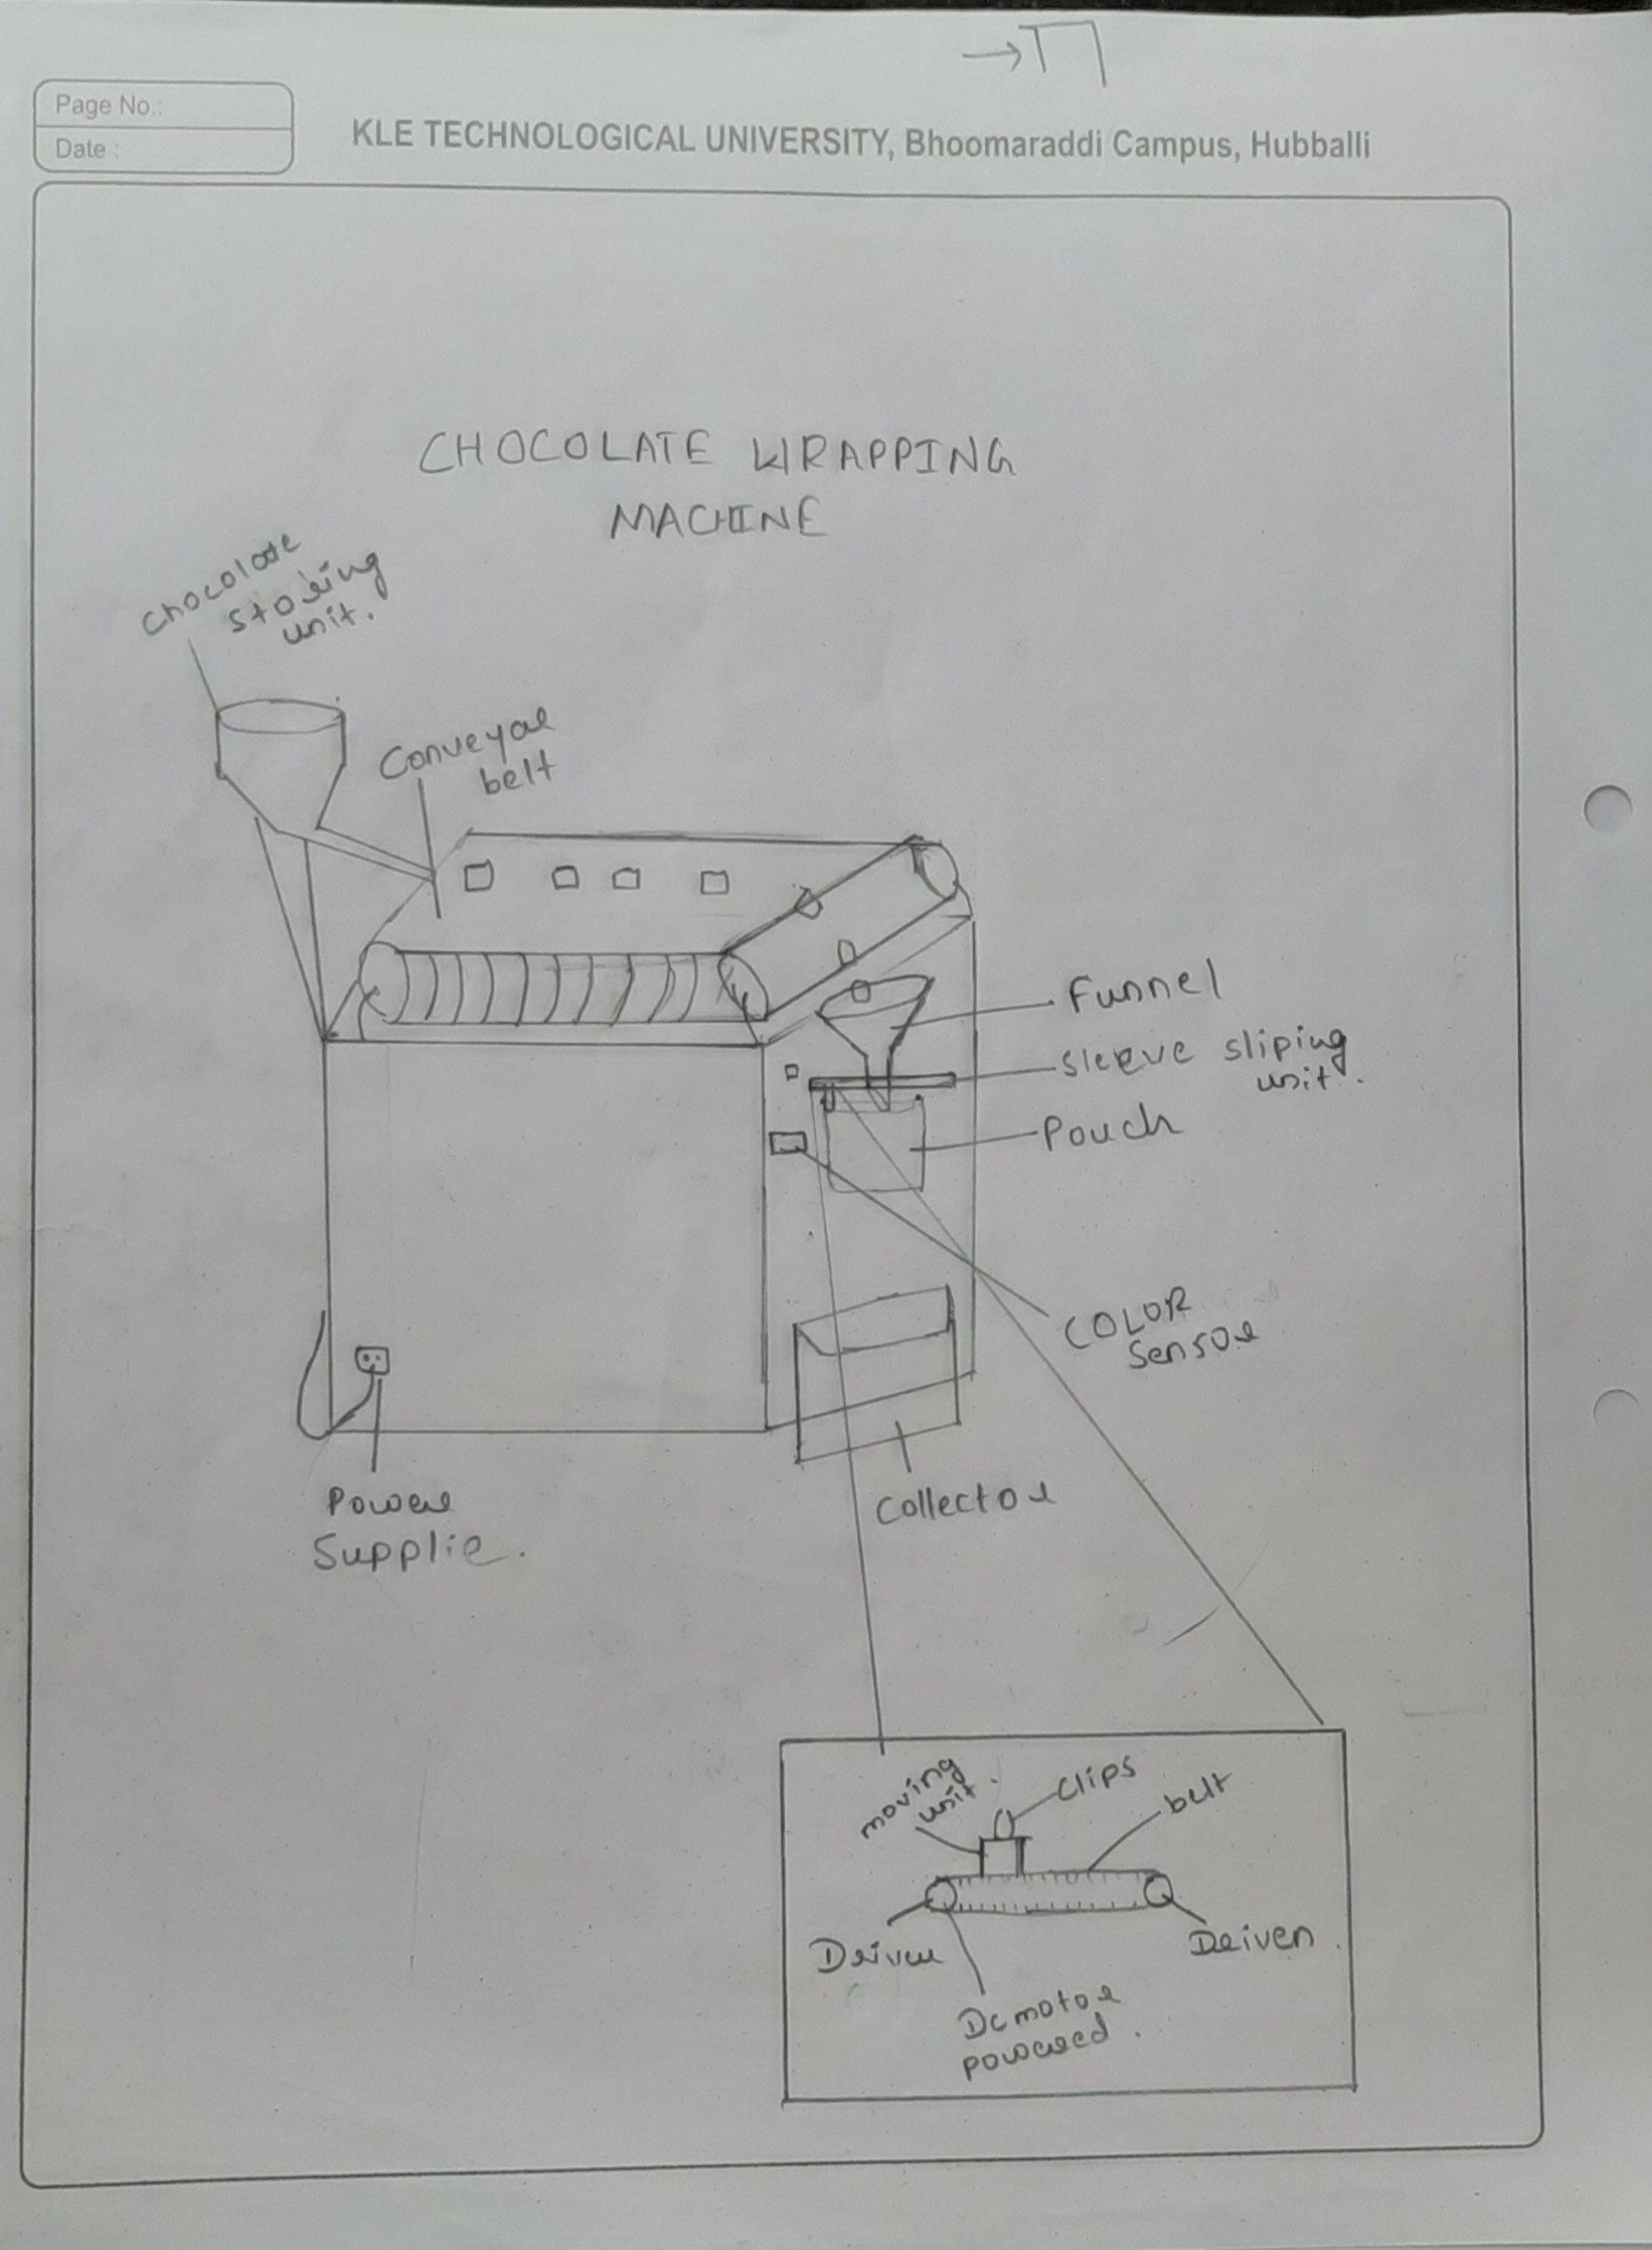 Page No.:
Date :
KLE TECHNOLOGICAL UNIVERSITY, Bhoomaraddi Campus, Hubballi
CHOCOLATE WRAPPING
MACHINE
chocolate
storing
unit.
Conveyor
belt
Funnel
sleeve sliping
unit.
Pouch
COLOR
Sensor
Collector
Power
Supplie.
moving
unit.
clips
belt
Driver
Driven.
Dc motor
powered.